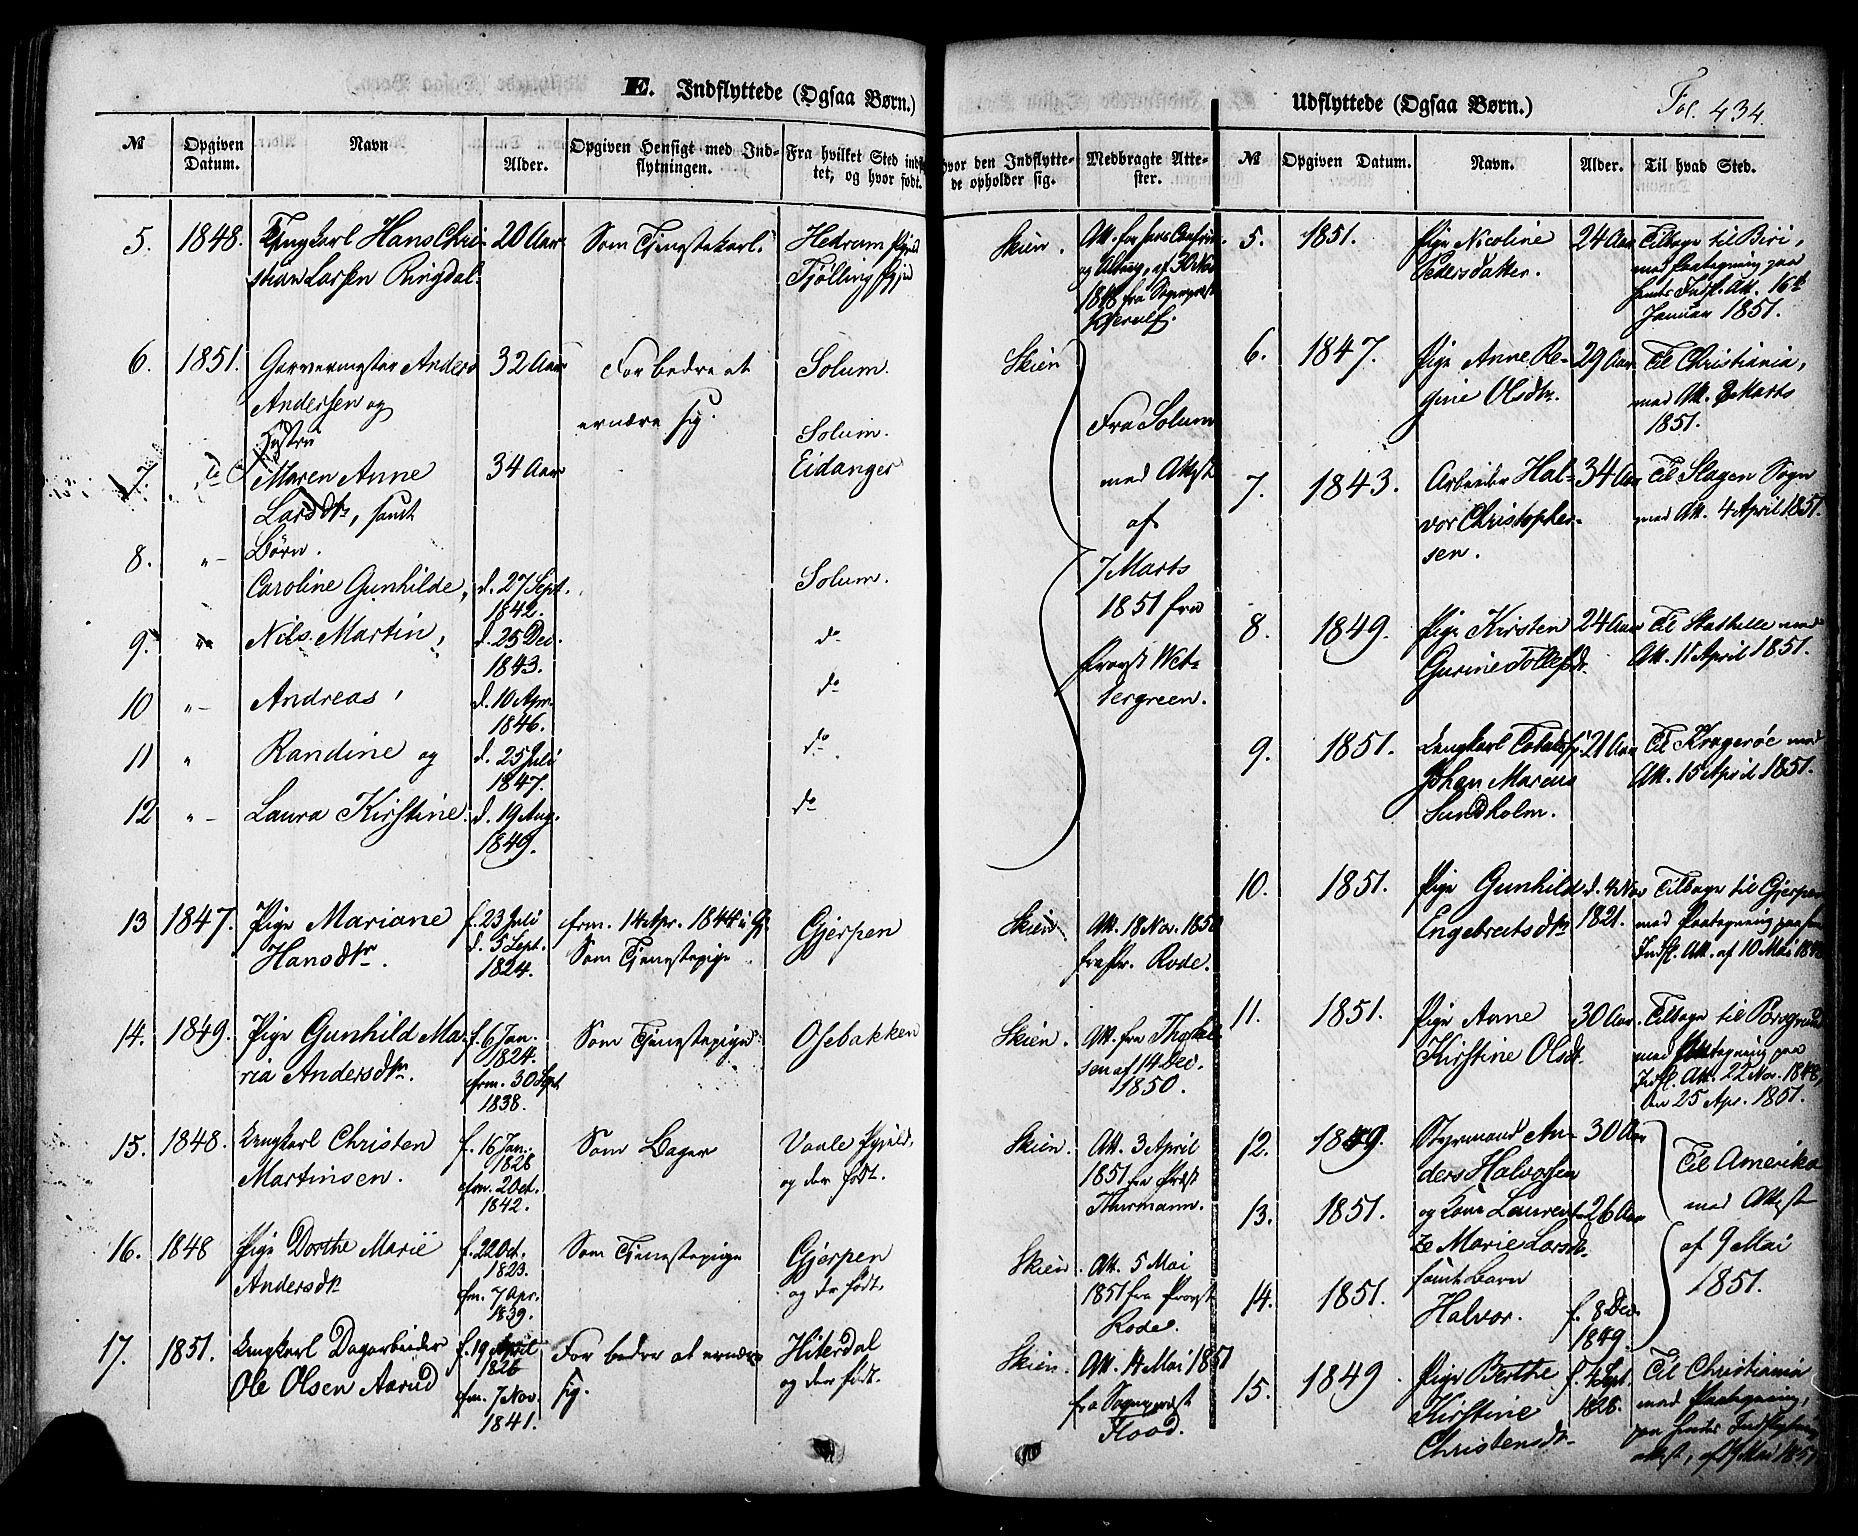 E. Indflyttede (Ogsaa Børn.)
№
Opgiven Datum.
Navn
Alder.
Opgiven Hensigt med Ind-
flytningen.
Fra hvilket Sted indfl
tet, og hvor født.
hvor den Indflytte-
de opholder sig.
Medbragte Atte-
ster.
5. 1848. Hans Chri- 20 Aar Som Tjenestekarl. Hedrum Skien.
stian Larsen Ringdal. Tjølling
1848 fra Sognepræst
Kjerulf.
6. 1851. Garvermester Anders 32 Aar For bedre at Solum. Skien
Andersen og ernære sig. Solum. Fra Solum
Hustru
7. Do Maren Anne 34 Aar Eidanger med Attest
Larsdtr, samt af
8. "- Børn. 7 Marts
Caroline Gunhilde, d. 27 Sept. Solum. 1851 fra
1842.
9. Nils Martin, d. 25 Dec. do Provst Wet-
1843.
10 "- Andreas, d. 10 Apr. do tergreen.
1846.
11 " Randine og d. 25 Juli do
1847.
12 "- Laura Kirstine. d. 19 Aug. do
1849.
13 1847. Pige Mariane f. 23 Juli cfrm. 14 Apr. 1844 i Gj. Gjerpen Skien. Att. 18 Nov. 1850
Hansdtr. d. 5 Sept. Som Tjenestepige fra Pr. Rode.
1824.
14. 1849. Pige Gunhild Ma- f. 6 Jan. Som Tjenestepige Osebakken Skien. Att. fra
ria Andersdtr. 1824. sen af 14 Dec.
cfrm. 30 Sept. 1850.
1838.
15. 1848. Ungkarl Christen f. 16 Jan. Som Bager Vaale Skien. Att. 3 April
Martinsen. 1826 og der født. 1851 fra Præst
cfrm. 2 Oct. Thurmann.
1842.
16. 1848 Pige Dorthe Marie f. 22 Oct. Som Tjenestepige Gjerpen Skien. Att. 5 Mai
Andersdtr 1823. og der født. 1851 fra Provst
cfrm. 7 Apr. Rode.
1839.
17. 1851. Ungkarl Dagarbeider f. 19 April For bedre at ernære Hiterdal Skien. Att. 14 Mai 1851
Ole Olsen Aarud 1826 sig. og der født. fra Sognepræst
cfrm. 7 Nov. Flood.
1841.
Udflyttede (Ogsaa Børn.)
Fol. 434.
№
Opgiven Datum.
Navn.
Alder.
Til hvad Sted.
5. 1851. Pige Nicoline 24 Aar Tilbage til Biri,
Pedersdatter. med Paategning paa
hendes Indfl. Att. 16de
Januar 1851.
6. 1847. Pige Anne Re- 29 Aar Til Christiania,
gine Olsdtr. med Att. 2 Marts
1851.
7. 1843. Arbeider Hal- 34 Aar Til Slagen Sogn
vor Christopher- med Att. 4 April 1851.
sen.
8. 1849. Pige Kirsten 24 Aar Til Stathelle med
Gurine Tollefsdtr. Att. 11 April 1851.
9. 1851. Ungkarl 21 Aar Til Kragerøe med
Johan Marcus Att. 15 April 1851.
Sundholm.
10. 1851. Pige Gunhild d. 4 Nov Tilbage til Gjerpen
Engebretsdtr 1821. med Paategning paa
Indfl. Att. af 10 Mai
11. 1851. Pige Anne 30 Aar. Tilbage til Porsgrund
Kirstine Olsdtr. med Paategning paa
Indfl. Att. 22 Nov. 1848,
den 25 Apr. 1851.
12. 1849. Styrmand An- 30 Aar Til Amerika
ders Halvorsen med Attest
13. 1851. og Kone Laurent- 26 Aar af 9 Mai
ze Marie Larsdtr 1851.
samt Barn
14. 1851. Halvor. f. 8 Dec.
1849.
15. 1849 Pige Berthe f. 4 Sept. Til Christiania
Kirstine 1828. med Paategning,
Christensdtr. paa hendes Indflytnings
attest, af 19 Mai 1851